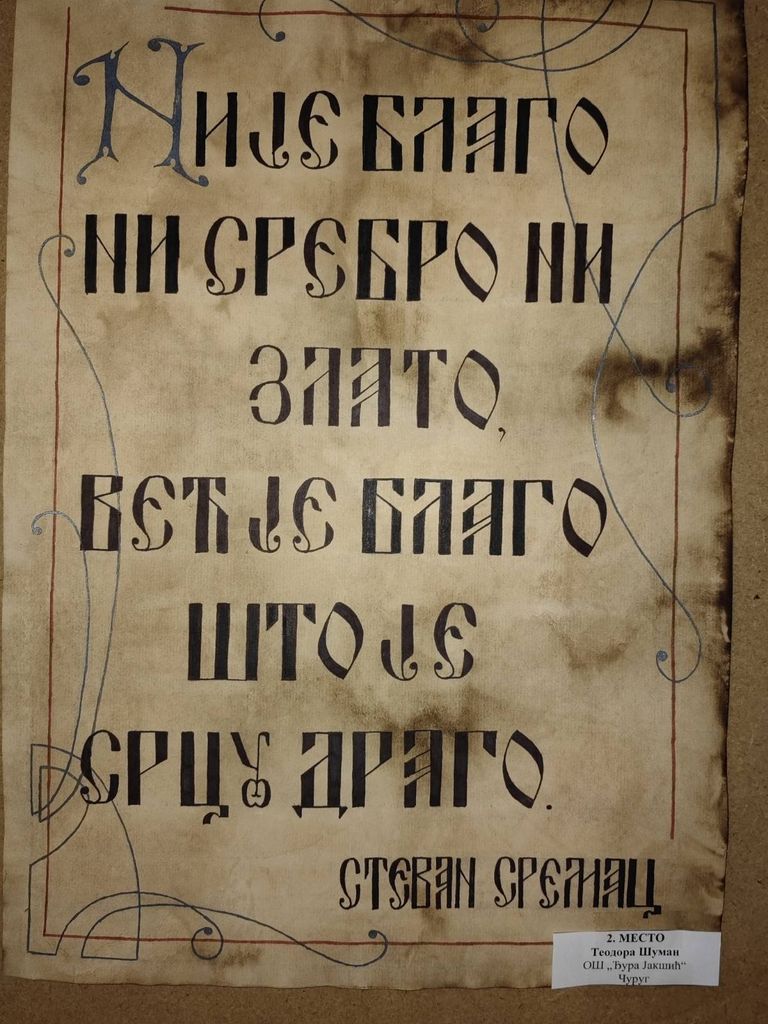 Није благо
ни сребро ни
злато,
већ је благо
што је
срцу драго.
Стеван Сремац
2. МЕСТО
Теодора Шуман
ОШ „Ђура Јакшић“
Чуруг